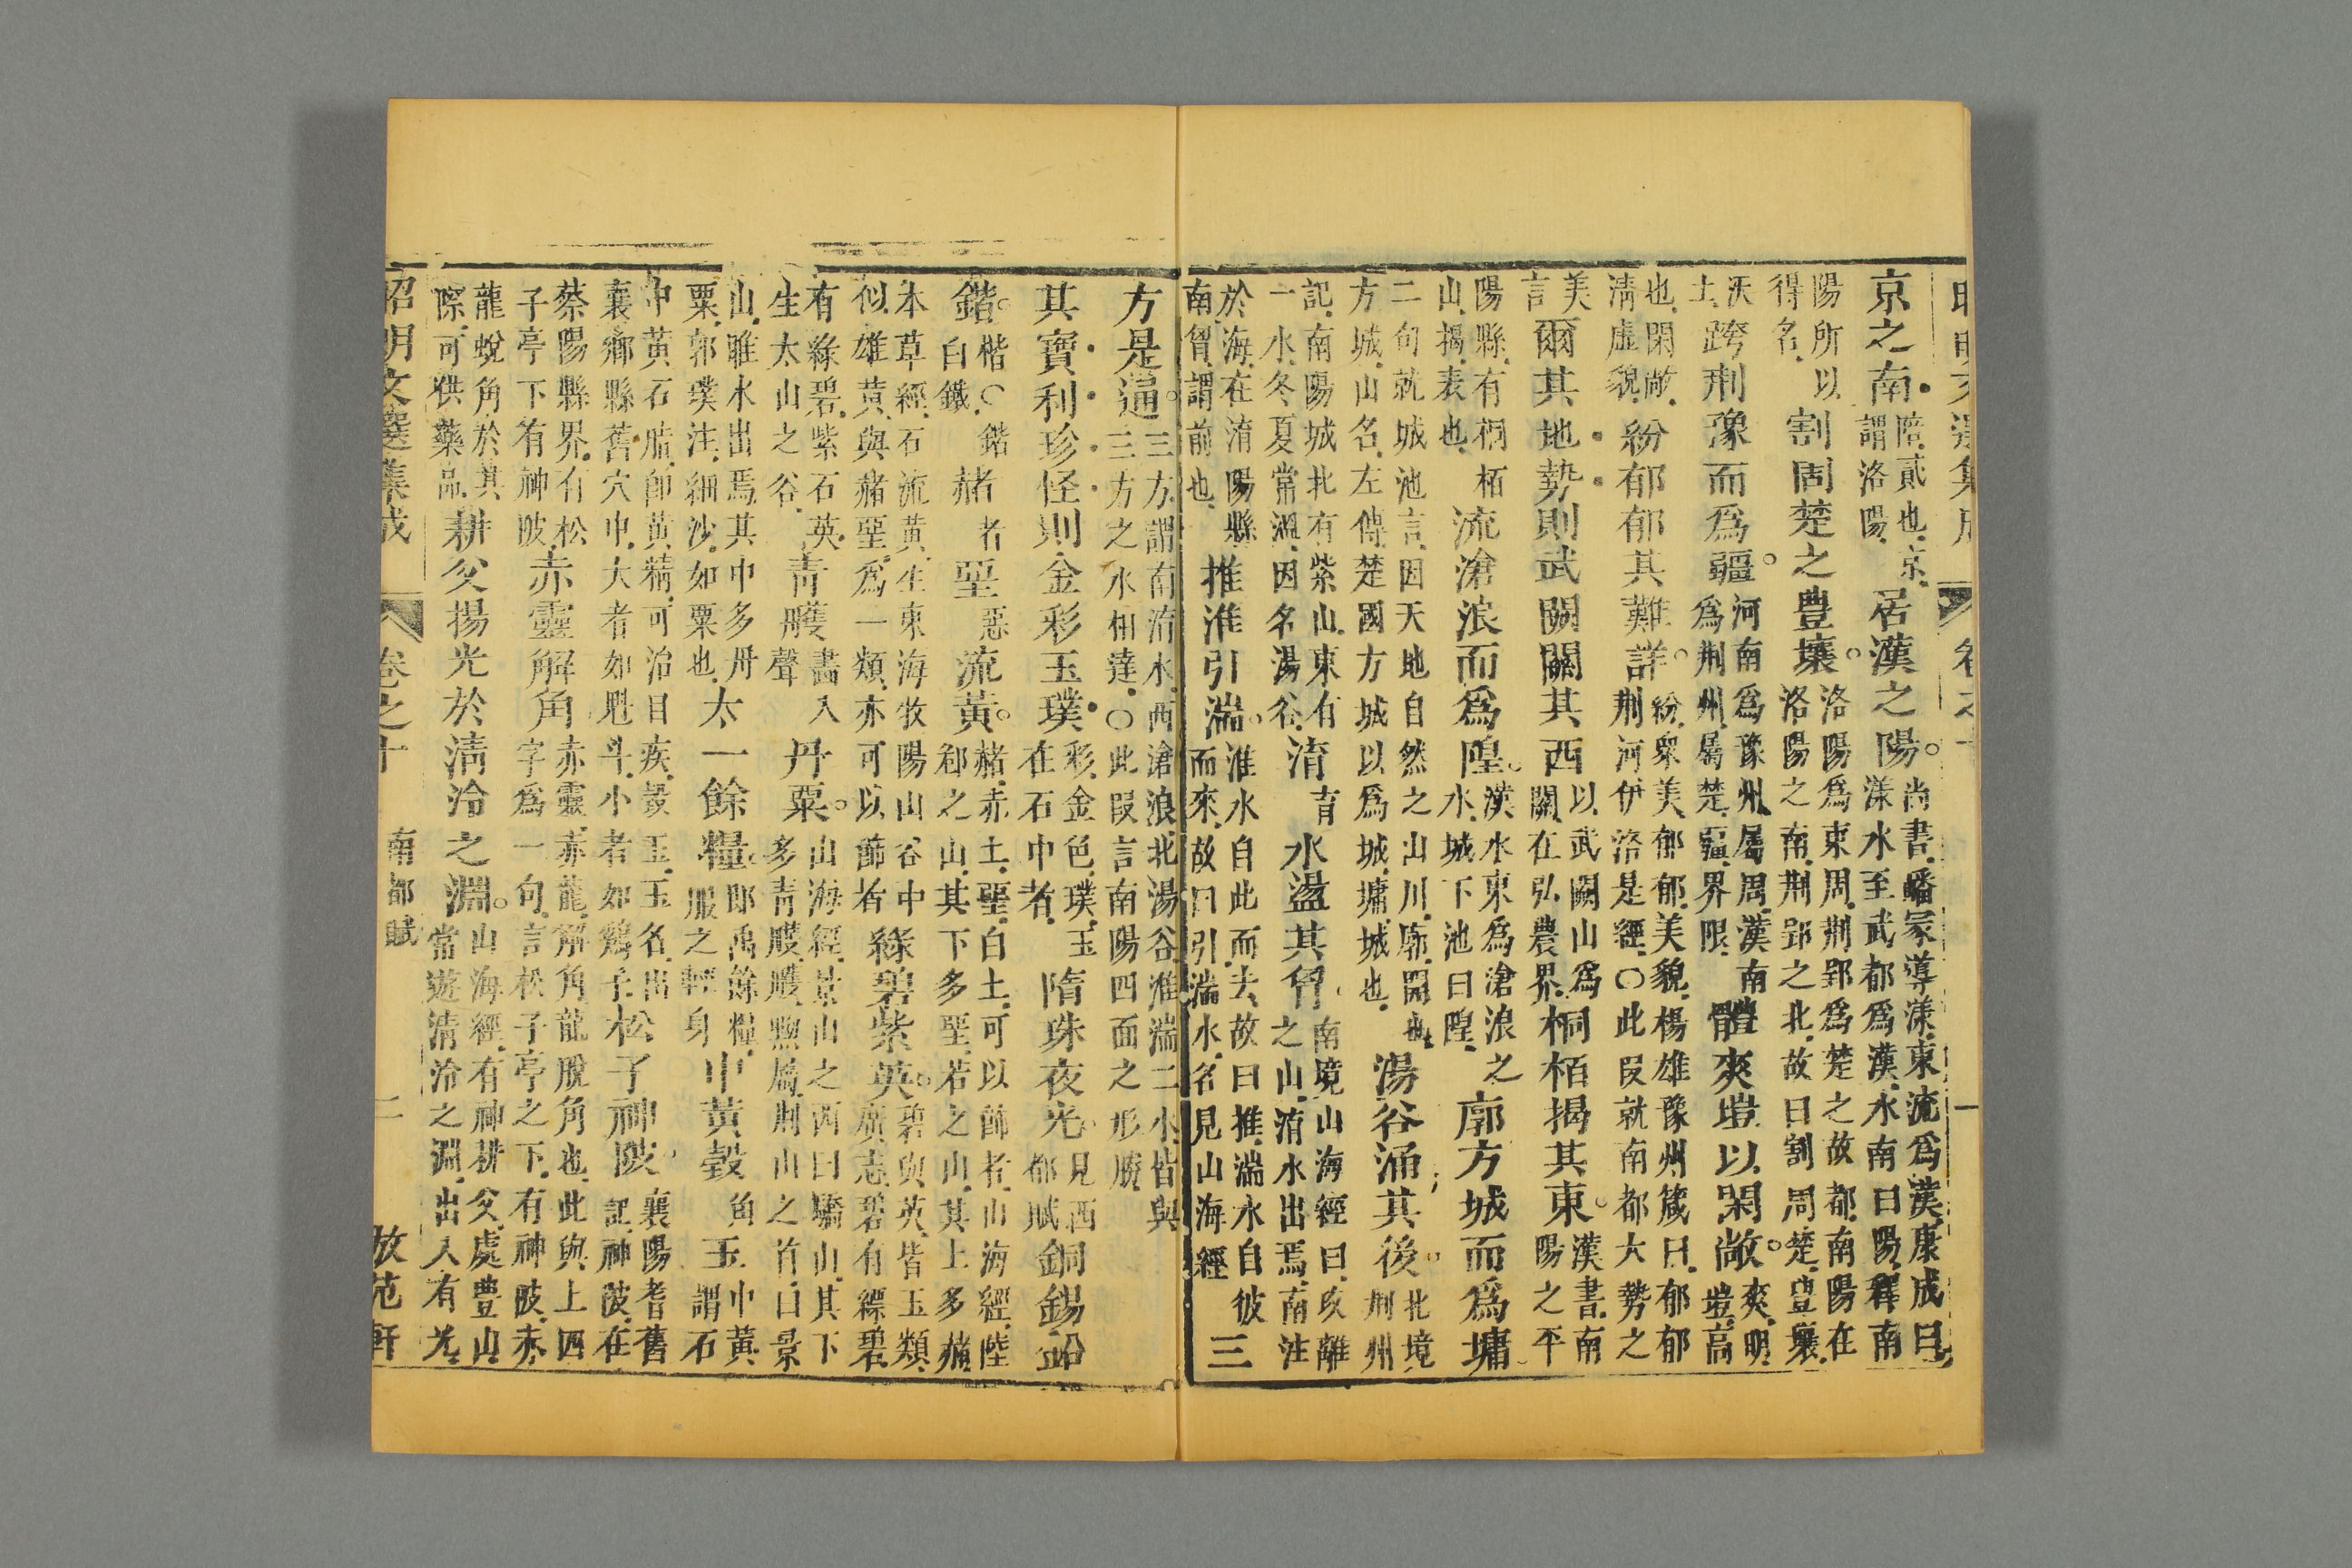 京之南陪貳也京謂洛陽居漢之陽尚書嶓冢導漾東流爲漢康成曰漾水至武都爲漢水南曰陽釋南
陽所以得名割周楚之豊壤洛陽爲東周荆郢爲楚之故都南陽在洛陽之南荆郢之北故曰割周楚豊壤
沃土跨荆豫而爲疆河南爲豫州屬周漢南爲荆州屬楚疆界限體爽塏以閑敞爽明塏高
也閑敞清虛貌紛郁郁其難詳紛衆美郁郁美貌楊雄豫州箴曰郁郁荆河伊洛是經○此段就南都大勢之
美言爾其地勢則武闕關其西以武闕山爲關在弘農界桐栢揭其東漢書南陽之平
陽縣有桐栢山揭表也流滄浪而爲隍漢水東爲滄浪之水城下池曰隍廓方城而爲墉
二句就城池言因天地自然之山川廓開也方城山名左傳楚國方城以爲城墉城也湯谷涌其後北境荆州
記南陽城北有紫山東有一水冬夏常溫因名湯谷淯育水盪其胷南境山海經曰攻離之山淯水出焉南注
於海在淯陽縣南胷謂前也推淮引湍淮水自此而去故曰推湍水自彼而來故曰引湍水名見山海經三
方是逼三方謂南淯水西滄浪北湯谷淮湍二水皆與三方之水相達○此段言南陽四面之形勝
其寶利珍怪則金彩玉璞彩金色璞玉在石中者隋珠夜光見西都賦銅錫鉛
鍇楷○鍇白鐵赭者堊惡流黃赭赤土堊白土可以飾者山海經陸郄之山其下多堊若之山其上多赭
本草經石流黃生東海牧陽山谷中似雄黃與赭堊爲一類亦可以飾者綠碧紫英碧與英皆玉類廣志碧有縹碧
有綠碧紫石英生太山之谷青雘畵入聲丹粟山海經景山之西曰驕山其下多青雘雘黝屬荆山之首曰景
山雎水出焉其中多丹粟郭璞注細沙如粟也太一餘糧卽禹餘糧服之輕身中黃瑴角玉中黃謂石
中黃石脂卽黃精可治目疾瑴玉玉名出襄鄉縣舊穴中大者如魁斗小者如鷄子松子神陂襄陽耆舊記神陂在
蔡陽縣界有松子亭下有神陂赤靈解角赤靈赤龍解角龍脫角也此與上四字爲一句言松子亭之下有神陂赤
龍蛻角於其際可供藥品耕父揚光於清泠之淵山海經有神耕父處豊山常遊清泠之淵出入有光
昭明文選集成 卷之十 南都賦 二